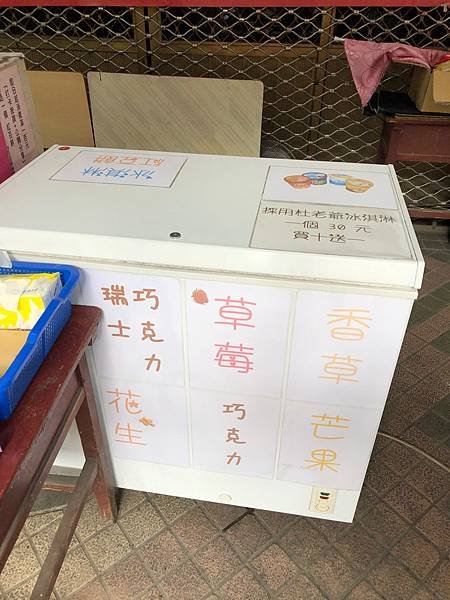 紅豆餅
冰淇淋
採用杜老爺冰淇淋
一個 30 元
買十送一
瑞士
巧克力
草莓
香草
花生
巧克力
芒果